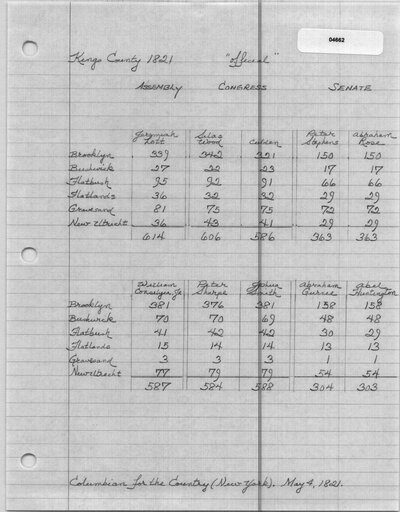 04662
Kings County 1821 "official"
ASSEMBLY CONGRESS SENATE
Jeremiah Lott Silas Wood Colden Peter Stephens Abraham Rose
Brooklyn 339 342 321 150 150
Bushwick 27 22 23 17 17
Flatbush 95 92 91 66 66
Flatlands 36 32 32 29 29
Gravesend 81 75 75 72 72
New Utrecht 36 43 41 29 29
614 606 586 363 363
William Conselyea, Jr. Peter Sharpe Joshua Smith Abraham Gurnee Abel Huntington
Brooklyn 381 376 381 158 158
Bushwick 70 70 69 48 48
Flatbush 41 42 42 30 29
Flatlands 15 14 14 13 13
Gravesend 3 3 3 1 1
New Utrecht 77 79 79 54 54
587 584 588 304 303
Columbian for the Country (New York). May 4, 1821.